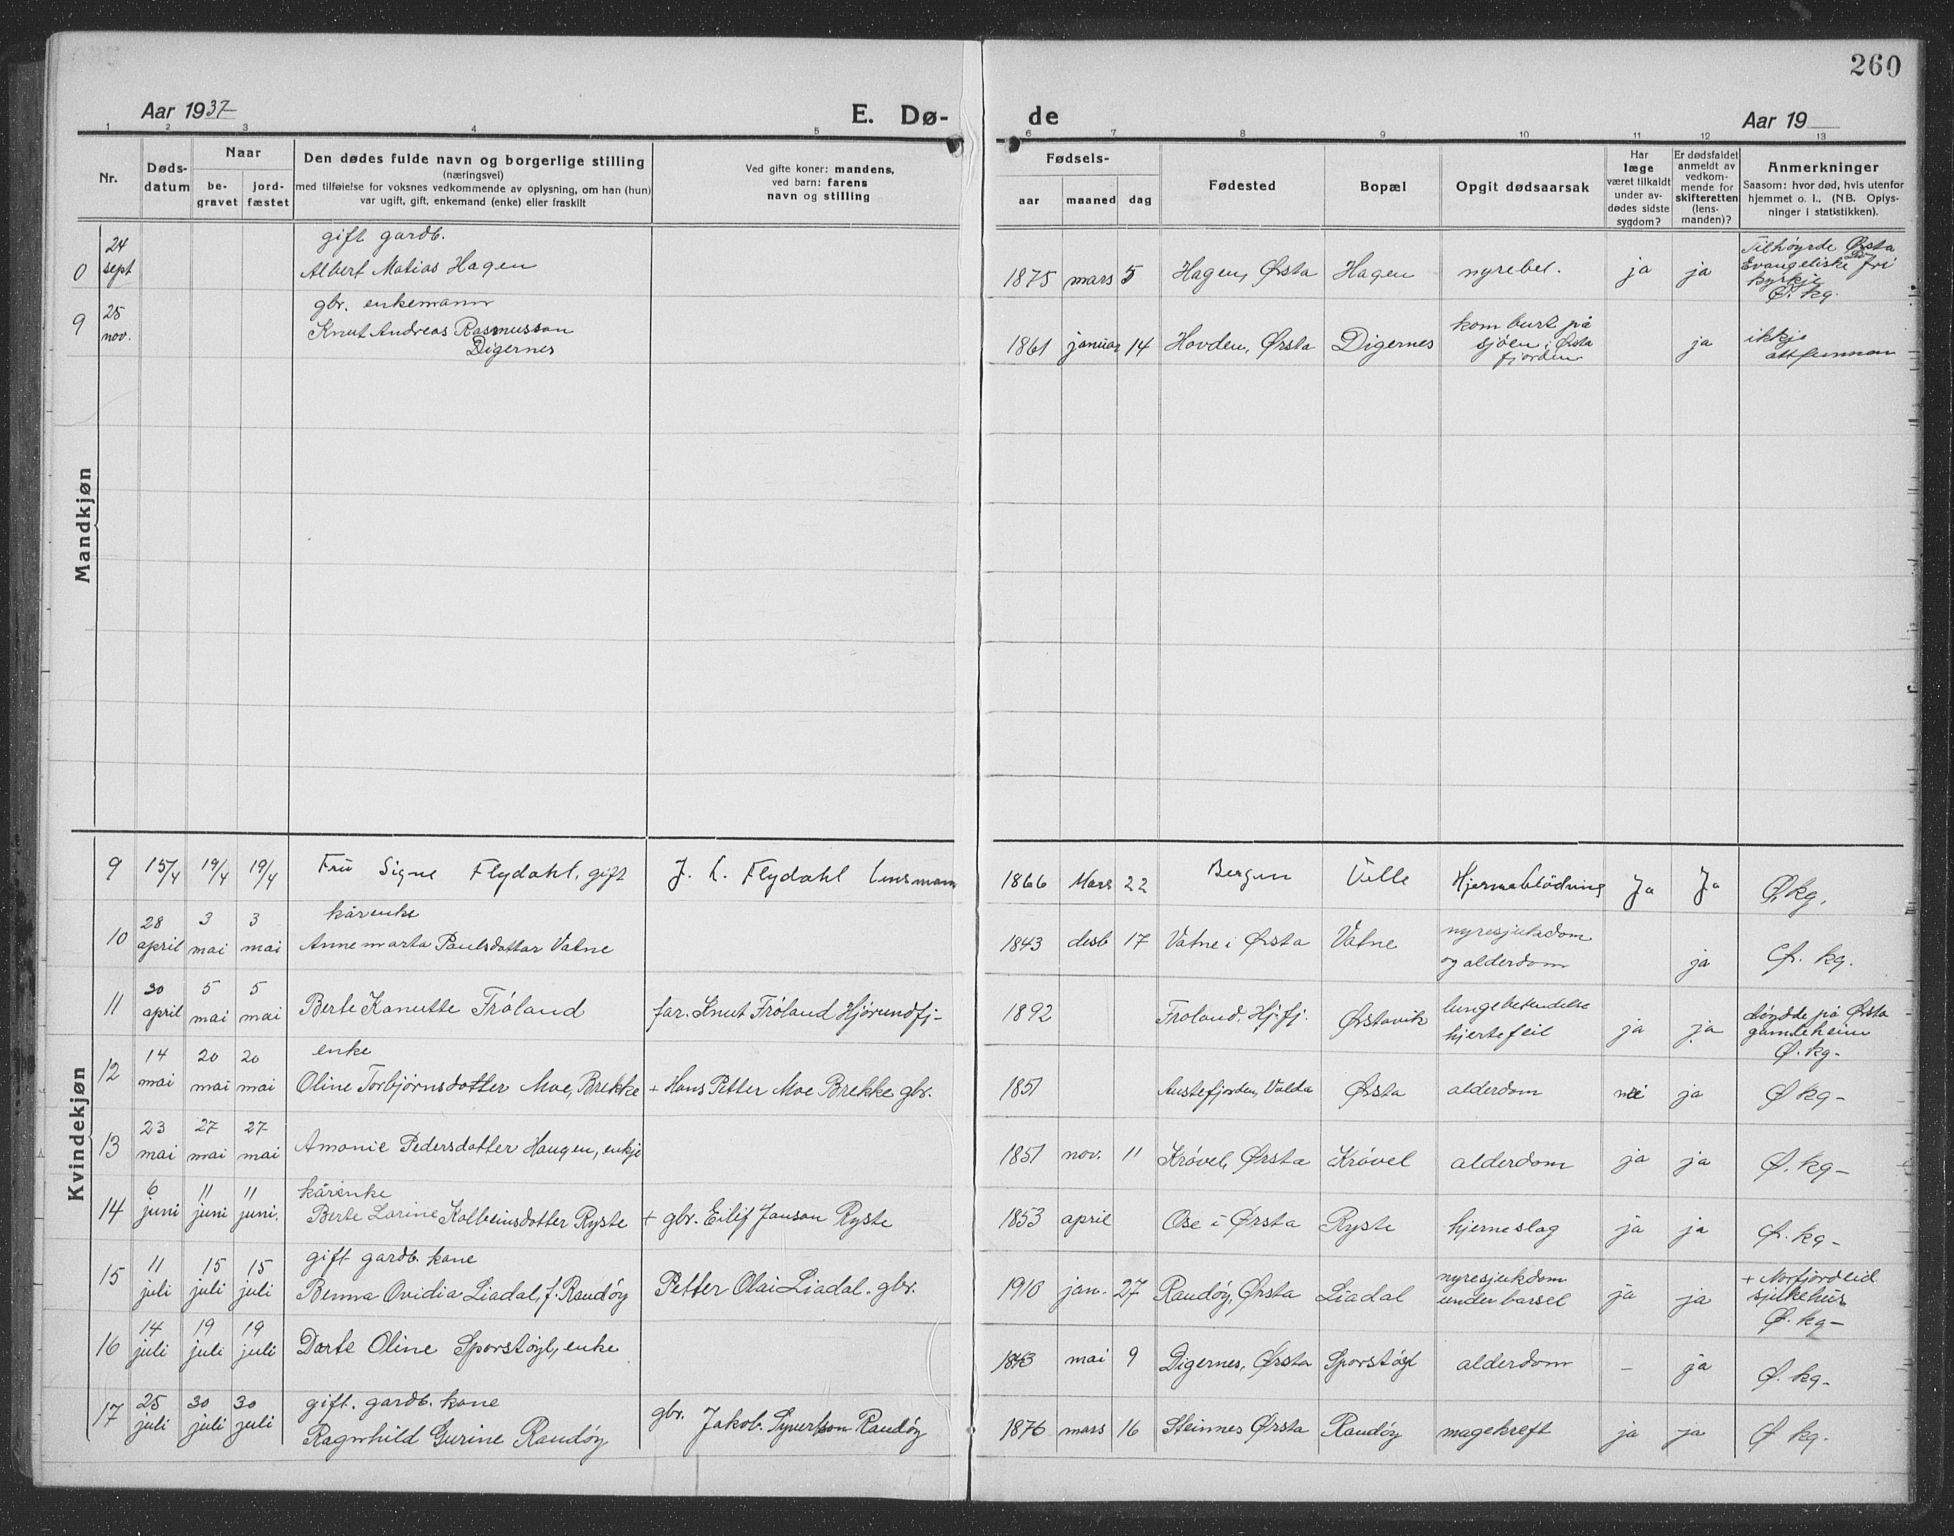 260
Aar 1937
E. Dø-
de
Aar 19
1 2 3 4 5 6 7 8 9 10 11 12 13
Nr.
Døds-
datum
Naar
be-
gravet
jord-
fæstet
Den dødes fulde navn og borgerlige stilling
(næringsvei)
med tilføielse for voksnes vedkommende av oplysning, om han (hun)
var ugift, gift, enkemand (enke) eller fraskilt
Ved gifte koner: mandens,
ved barn: farens
navn og stilling
Fødsels-
aar
maaned
dag
Fødested
Bopæl
Opgit dødsaarsak
Har
læge
været tilkaldt
under av-
dødes sidste
sygdom?
Er dødsfaldet
anmeldt av
vedkom-
mende for
skifteretten
(lens-
manden)?
Anmerkninger
Saasom: hvor død, hvis utenfor
hjemmet o. l.. (NB. Oplys-
ninger i statistikken).
Mandkjøn
0 24 sept gift gardb.
Albert Matias Hagen 1875 mars 5 Hagen, Ørsta Hagen nyrebet. ja ja Tilhøyrde Ørsta
Evangeliske fri
kyrkje
Ø. kg.
9 25 nov. gbr. enkemann
Knut Andreas Rasmusson
Digernes 1861 januar 14 Hovden, Ørsta Digernes kom burt på
sjøen i Ørsta
fjorden ja ikkje
attfunnen
Kvindekjøn
9 15/4 19/4 19/4 Fru Signe Flydahl, gift J. L. Flydahl Lensmann 1866 Mars 22 Bergen Ville Hjerneblödning Ja Ja Ø kg.
10 28 april 3 mai 3 mai kårenke
Anne marta Paulsdottar Vatne 1843 desb 17 Vatne i Ørsta Vatne nyresjukdom
og alderdom ja Ø. kg.
11 30 april 5 mai 5 mai Berte Kanutte Frøland far. Knut Frøland Hjørundfj- 1892 Froland. Hj.fj. Ørstavik lungebetendelse
hjertefeil ja ja døydde på Ørsta
gamleheim
Ø. kg-
12 14 mai 20 mai 20 mai enke
Oline Torbjørnsdotter Moe, Brekke + Hans Petter Moe Brekke gbr. 1851 Austefjorden, Volda Ørsta alderdom nei ja Ø kg-
13 23 mai 27 mai 27 mai Amonie Pedersdotter Haugen, enkje 1851 nov. 11 Krøvel, Ørsta Krøvel alderdom ja ja Ø. kg-
14 6 juni 11 juni 11 juni. kårenke
Berte Lorine Kolbeinsdotter Ryste + gbr. Eilif Janson Ryste 1853 april Ose i Ørsta Ryste hjerneslag ja ja Ø. kg-
15 11 juli 15 juli 15 juli gift gardb. kone
Benna Ovidia Liadal, f. Raudøy Petter Olai Liadal. gbr. 1910 jan. 27 Raudøy, Ørsta Liadal nyresjukdom
under barsel ja ja + Norfjordeid
sjukehus
Ø. kg-
16 14 juli 19 juli 19 juli Dorte Oline Sporstøyl, enke 1843 mai 9 Digernes, Ørsta Sporstøyl alderdom - ja Ø. kg-
17 25 juli 30 juli 30 juli gift. gardb. kone
Ragnhild Gurine Raudøy gbr. Jakob. Syvertson Raudøy 1876 mars 16 Steinnes Ørsta Raudøy magekreft ja ja Ø kg.